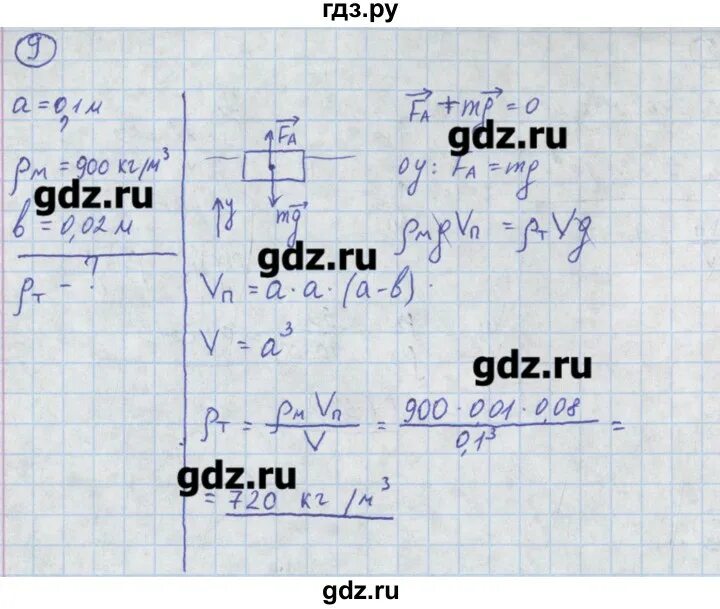 гдз.ру
9
a = 0,1 м
?
ρм = 900 кг/м³
gdz.ru
в = 0,02 м
ρт - ?
F⃗A
mg⃗
y
F⃗A + mg⃗ = 0
gdz.ru
oy: FA = mg
ρм g Vп = ρт V g
gdz.ru
Vп = a · a · (a - в)
V = a³
gdz.ru
ρт = ρм Vп / V = 900 · 0,01 · 0,08 / 0,1³ =
gdz.ru
= 720 кг/м³
gdz.ru